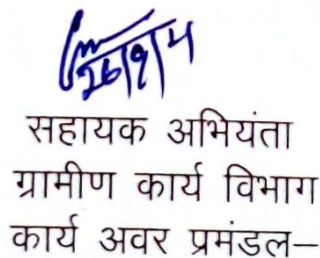 26/9/14
सहायक अभियंता
ग्रामीण कार्य विभाग
कार्य अवर प्रमंडल–